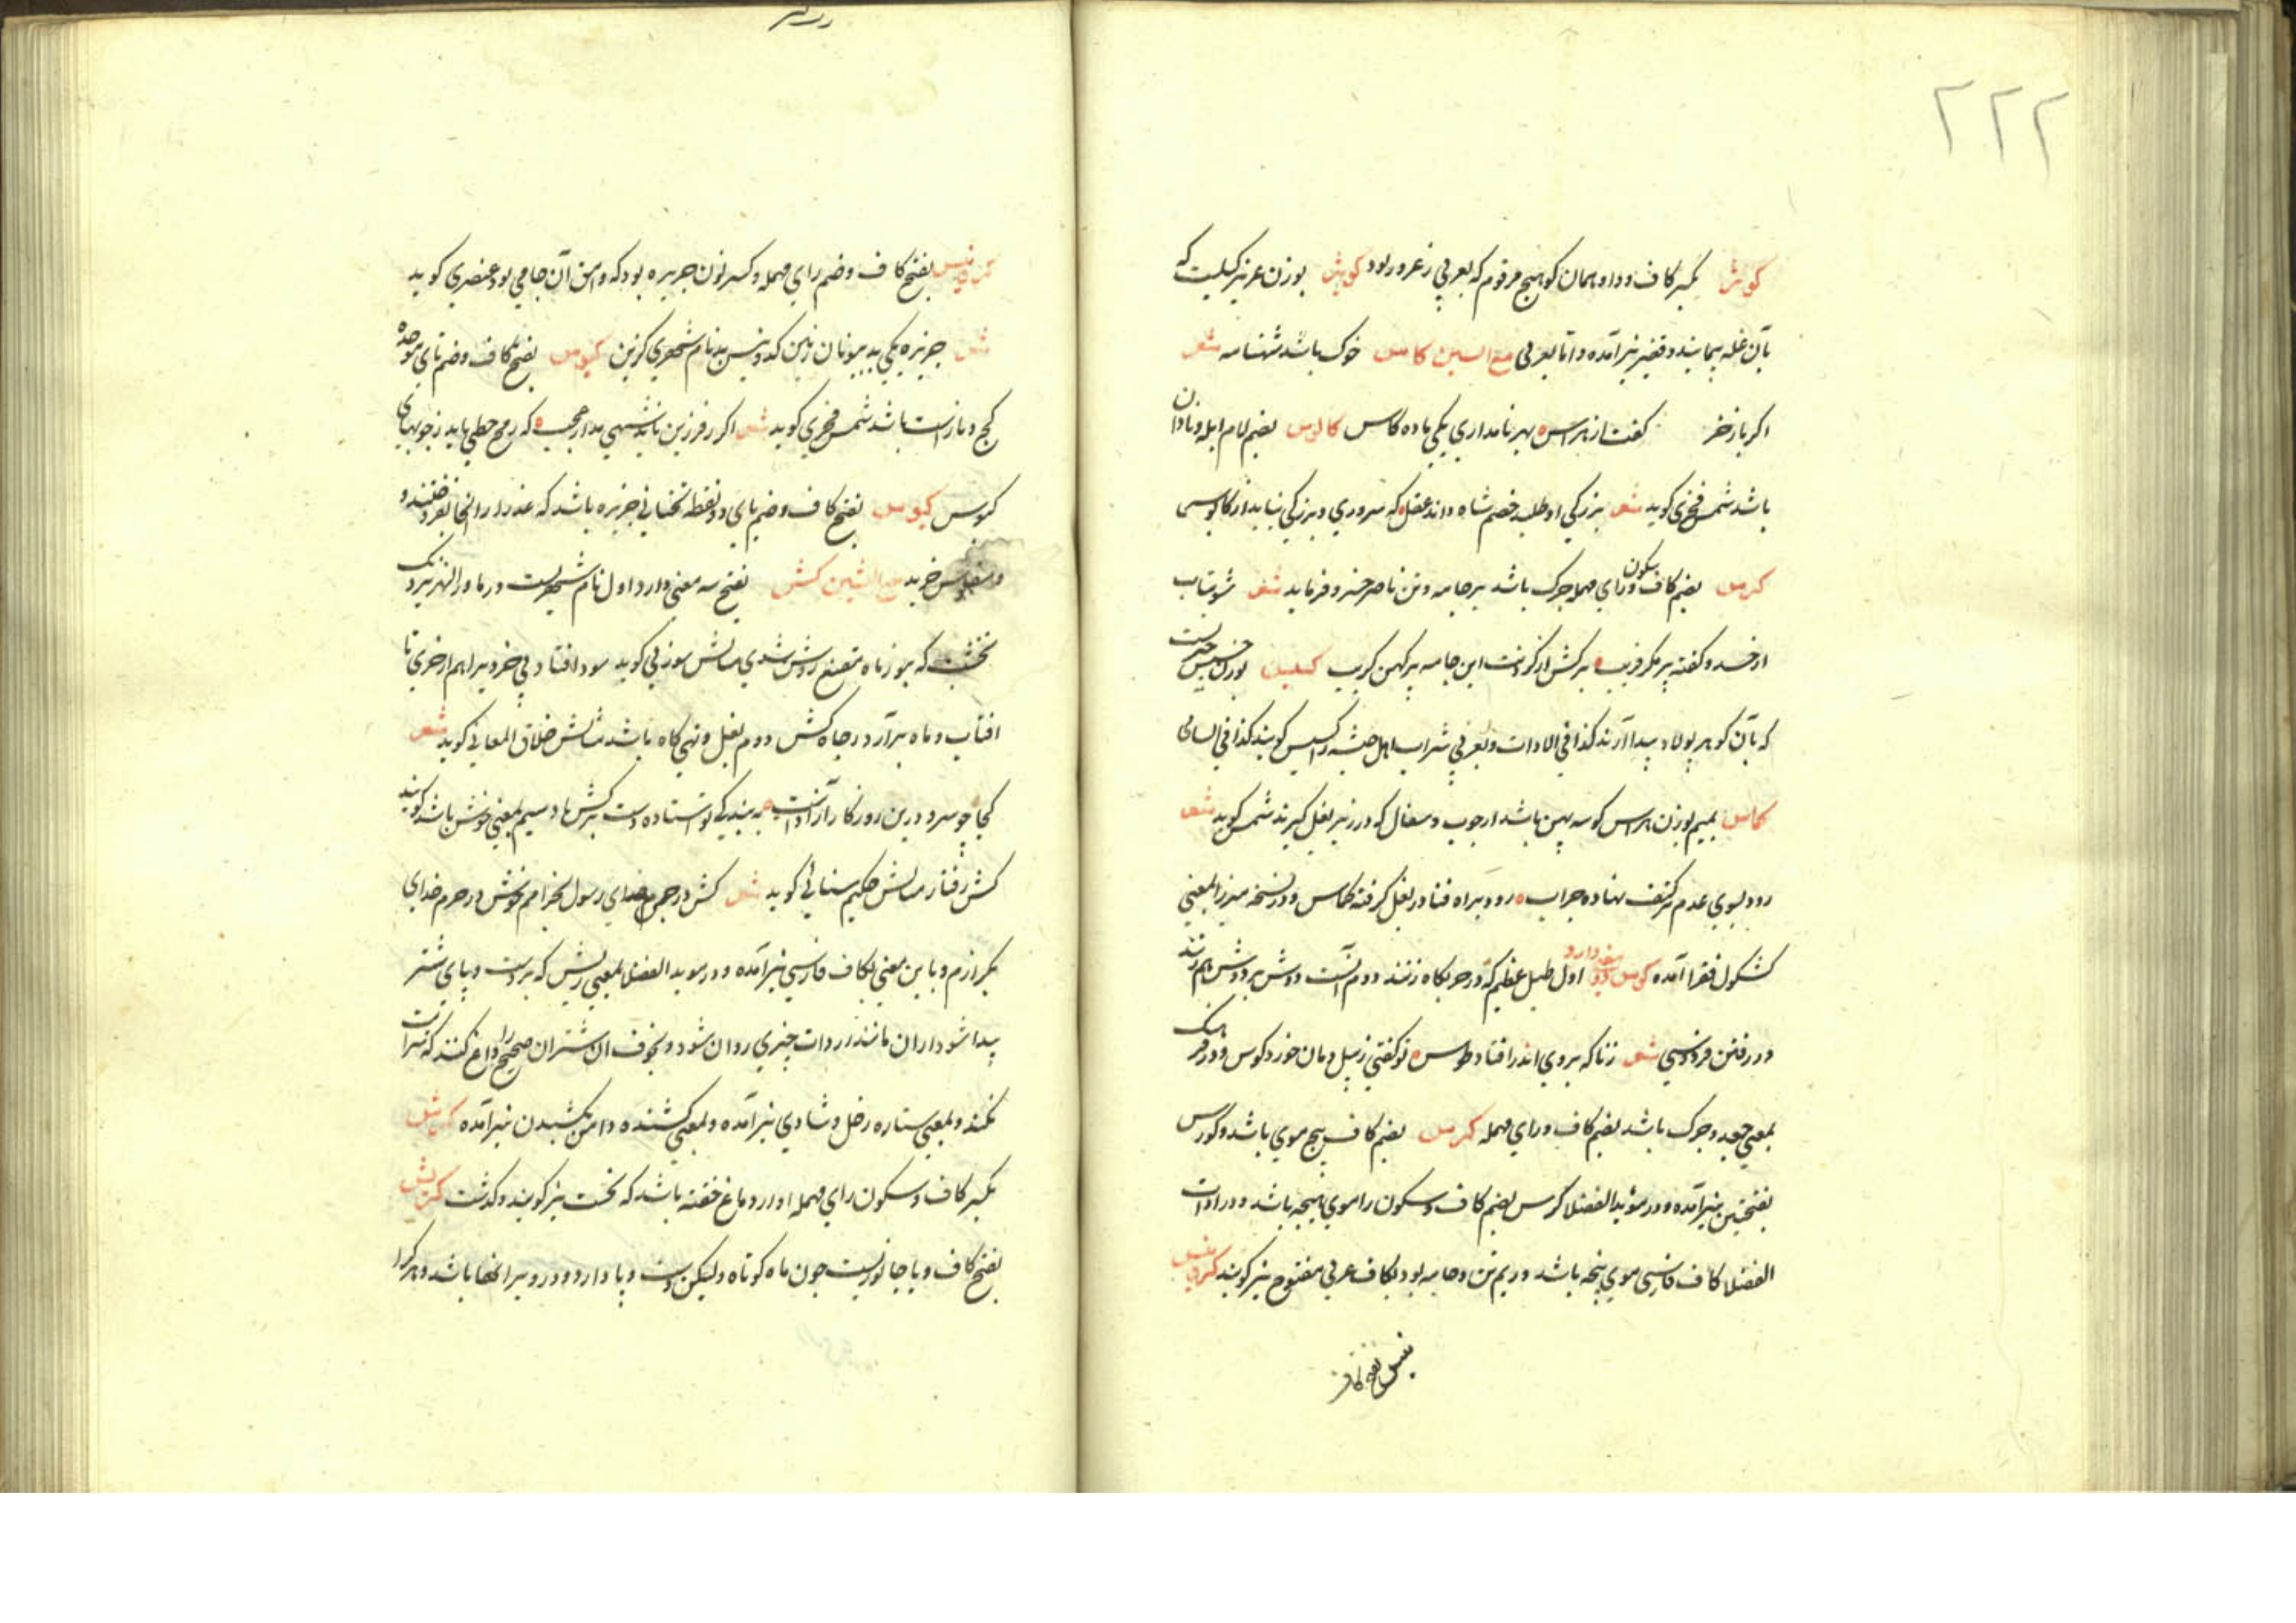 ۲۲۲
کویز بکسر کاف و واو همان کوهیج مرقوم که بعربی زعرور بود کویز بوزن عزیز کیلیست که
بآن غله پیمایند و قفیز نیز آمده و انا بعربی مع السین کاس خوک باشد شهنامه شعر
اکر باز خر گفت از هراس بهر نامداری یکی باده کاس کالوس بضم لام ابله و نادان
باشد شمس فخری کوید شعر بزرکی او طلبد خصم شاه و اند عقل که سروری و بزرکی نیاید از کالوس
کرس بضم کاف و سکون رای مهمله چرک باشد بر جامه و تن ناصر خسرو فرماید شعر شو بتاب
از خسد و کفته پر مکر و فریب برکش از کردنت این جامه پر کهن کریب کسیس بوزن خسیس چیزیست
که بآن کوهر پولاد پیدا آرند کذا فی الادات و بعربی شراب اهل حبشه را کسیس کویند کذا فی السامی
کماس بمیم بوزن هراس کوسه پهن باشد از چوب و سفال که در زیر بغل کیرند شمس کوید شعر
رود بسوی عدم بر کتف نهاده جراب رود براه فنا در بغل کرفته کماس و در نسخه میرزا بمعنی
کشکول فقرا آمده کوس دو معنی دارد اول طبل عظیم که در حربکاه زنند دوم آنست دوش بر دوش هم زنند
در رفتن فردوسی شعر زناکه بروی اندر افتاد طوس تو کفتی ز پیل دمان خورد کوس و در فرهنک
بمعنی جعد و چرک باشد بضم کاف و رای مهمله کرس بضم کاف پیچ موی باشد و کورس
بفتحتین نیز آمده و در مؤید الفضلا کرس بضم کاف و سکون را موی پیچه باشد و در ادات
الفضلا کاف فارسی موی پیچه باشد و ریم تن و جامه بود بکاف عربی مفتوح نیز کویند کرونیس
نیس بفتح کاف
کرونیس بفتح کاف و ضم رای مهمله و کسر نون جزیره بود که وامق آن جا می بود عنصری کوید
شعر جزیره یکی بد بیونان زمین کرونیس بد نام شهری کزین کبوس بفتح کاف و ضم بای موحده
کج و ناراست باشد شمس فخری کوید شعر اکر فرزین نباشد سهی مدار عجب که رمح خطی باید ز چوبهای
کبوس کیوس بفتح کاف و ضم یای دو نقطه تحتانی جزیره باشد که عذرا را آنجا بفروختند و
خرید مع الشین کش بفتح سه معنی دارد اول نام شهریست در ماوراء النهر نزدیک
نخشب که موز ماه مقنع روشن شدی مثالش سوزنی کوید سود افتاد پی خرد برا هم از خری تا
افتاب و ماه برآرد ز چاه کش دوم بغل و تهی کاه باشد مثالش خلاق المعانی کوید شعر
کجا چو سرو درین روزکار آزادست به بندکی تو استاده دست بر کش ماد سیم بمعنی خوش باشد کویند
کش رفتار مثالش حکیم سنائی کوید شعر کش در چمن خدای رسول بخرامم خوش در حرم خدای
بکرازم و باین معنی بکاف فارسی نیز آمده و در موید الفضلا بمعنی ریش که بر دست و پای شتر
پیدا شود ازان مانند زردآب چیزی روان شود و بخوف آن اشتران صحیح را داغ کنند که سرایت
نکند و بمعنی ستاره زحل و شادی نیز آمده و بمعنی کشنده و امر بکشیدن نیز آمده کرش
بکسر کاف و سکون رای مهمله اواز دماغ خفته باشد که نخست نیز کویند و کذشت کربش
بفتح کاف و با جانوریست چون ماه کوتاه ولیکن دست و پا دارد و در ویرانها باشد و هر کرا